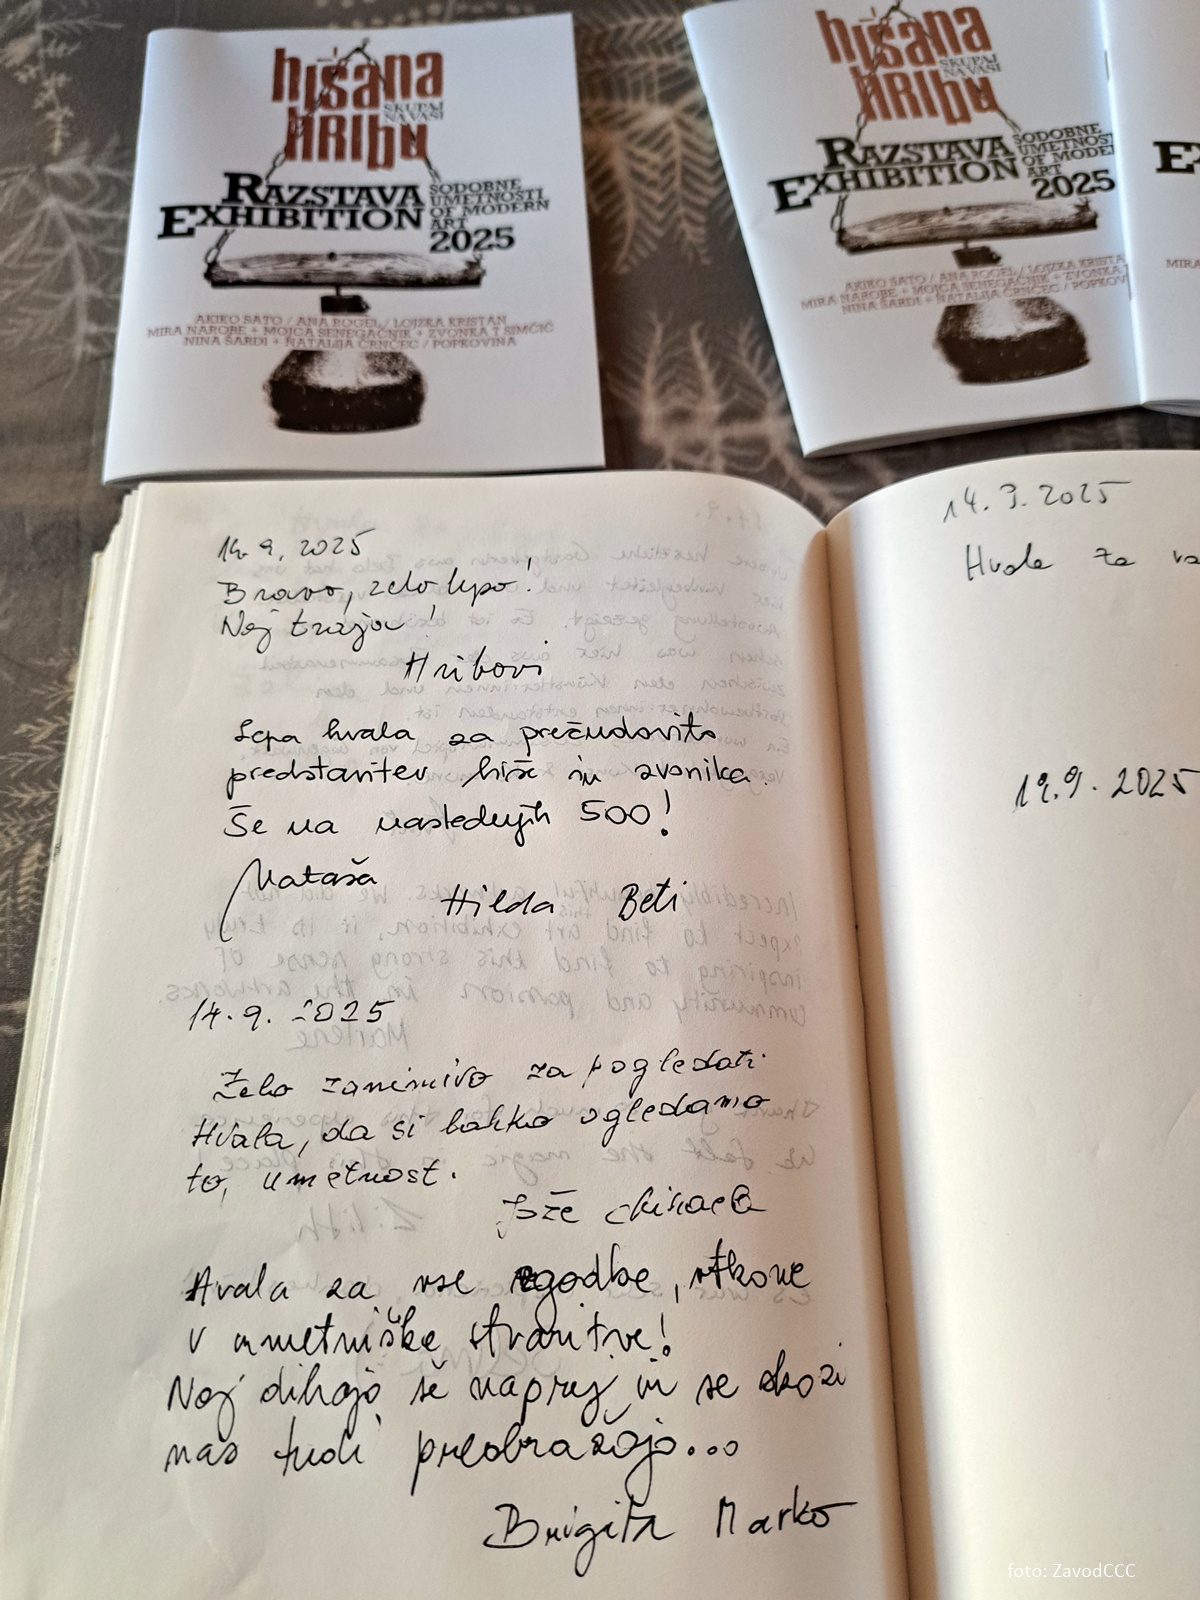 hiša na
SKUPAJ
NA VASI
hribu
RAZSTAVA
EXHIBITION
SODOBNE
UMETNOSTI
OF MODERN
ART
2025
AKIKO SATO / ANA ROGEL / LOJZKA KRISTAN
MIRA NAROBE + MOJCA SENEGAČNIK + ZVONKA T SIMČIČ
NINA ŠARDI + NATALIJA ČRNČEC / POPKOVINA
hiša na
SKUPAJ
NA VASI
hribu
RAZSTAVA
EXHIBITION
SODOBNE
UMETNOST
OF MODE
ART
2025
AKIKO SATO / ANA ROGEL / LOJZKA KRISTA
MIRA NAROBE + MOJCA SENEGAČNIK + ZVONKA T
NINA ŠARDI + NATALIJA ČRNČEC / POPKOV
EX
MIRA
14. 9. 2025
Bravo, zelo lepo!
Naj traja!
Hribovi
Lepa hvala za prečudovito
predstavitev hiše in zvonika.
Še na naslednjih 500!
Nataša
Hilda Beti
14. 9. 2025
Zelo zanimivo za pogledati
Hvala, da si lahko ogledamo
to, umetnost.
Jože
Hvala za vse zgodbe, vtkane
v umetniške stvaritve!
Naj dihajo še naprej in se skozi
nas tudi preobražajo...
Brigita Marko
14. 9. 2025
Hvala za va
19. 9. 2025
foto: ZavodCCC